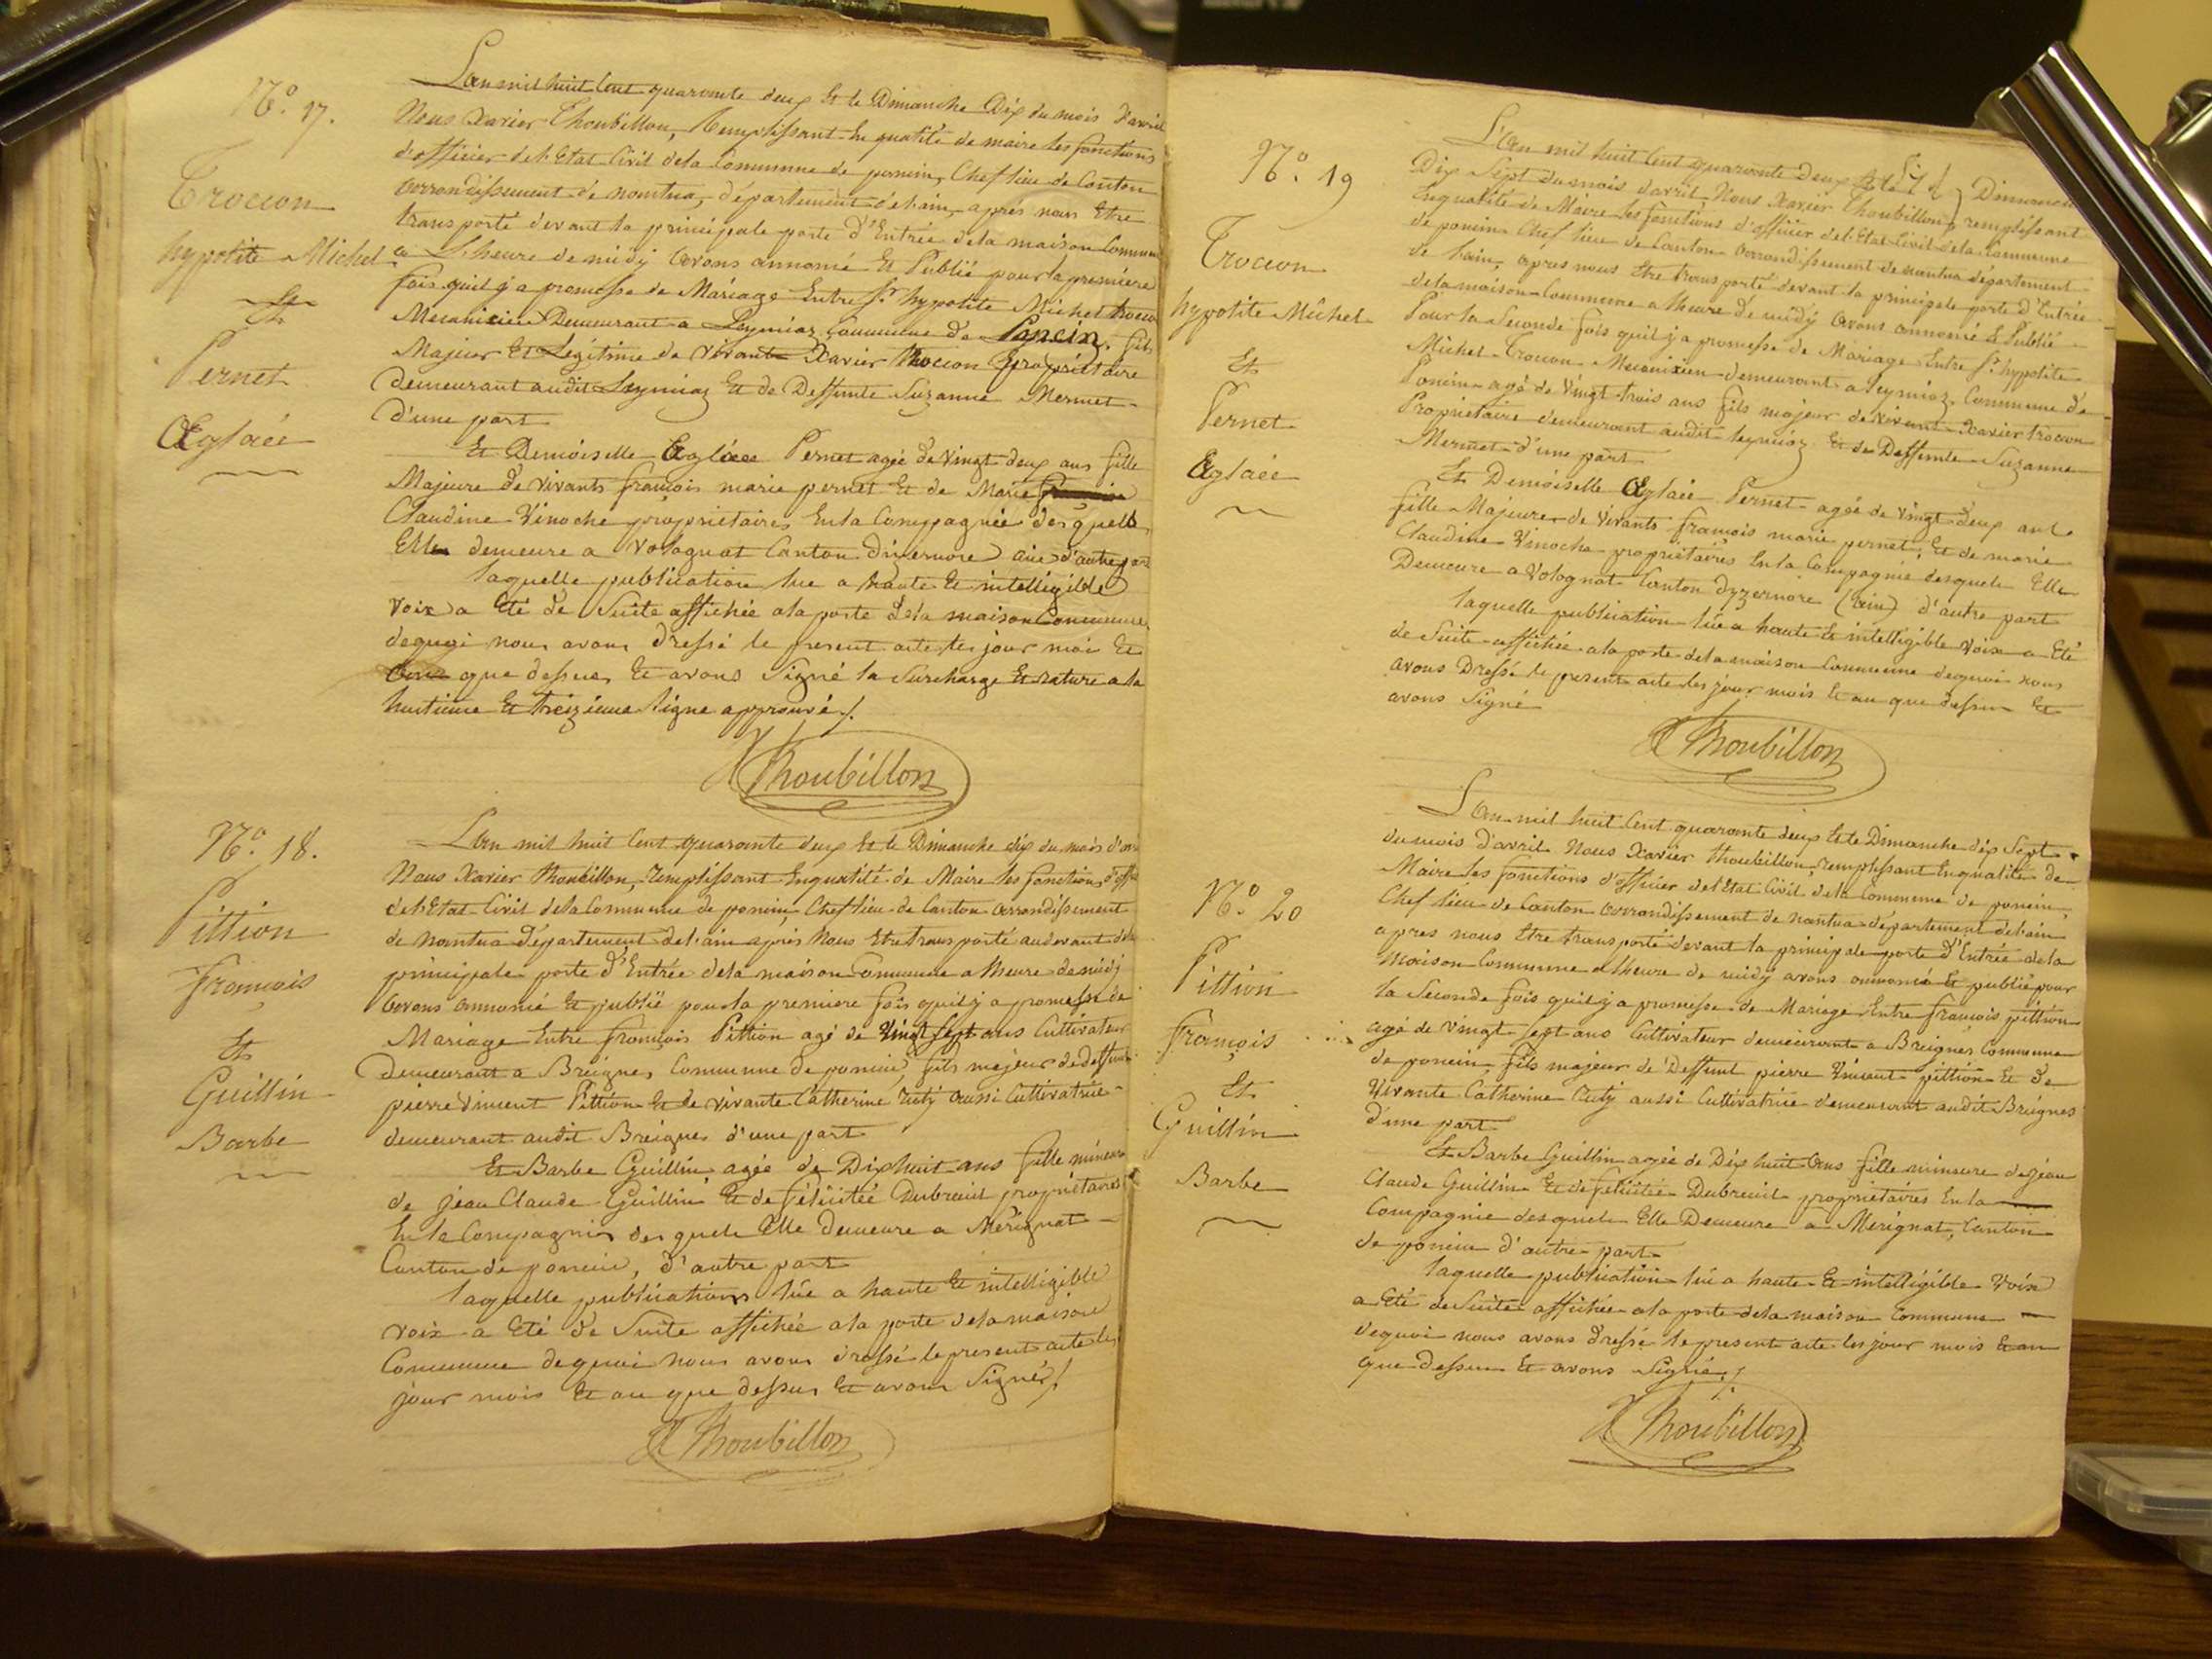 N.º 17.
Trocon
hypolite Michel
Et
Pernet
Æglaée
L'an mil huit Cent quarante deux Et le Dimanche Dix du mois d'avril
Nous Xavier Thoubillon, Remplissant En qualité de maire les fonctions
d'officier de l'Etat Civil de la Commune de poncin, Chef lieu de Canton
arrondissement de nantua, département de l'ain, après nous Etre
transporté devant la principale porte d'Entrée de la maison Commune
a L'heure de midy avons annoncé Et Publié pour la première
fois qu'il y a promesse de Mariage Entre Sr. hypolite Michel trocon
Mecanicien Demeurant a Leymiaz Commune de Poncin, fils
Majeur Et Légitime de vivant Xavier Trocon Propriétaire
demeurant audit Leymiaz Et de Deffunte Suzanne Mermet
d'une part
Et Demoiselle Æglaée Pernet agée de Vingt deux ans fille
Majeure de vivants françois marie pernet Et de Marie
Claudine Vinoche propriétaires En la Compagnie des quels
Elle demeure a Volognat Canton d'izernore ain d'autre part
laquelle publication lue a haute Et intelligible
voix a Eté de Suite affichée a la porte de la maison Commune
de quoi nous avons dressé le present acte les jour moi Et
que dessus Et avons Signé la Surcharge Et rature a la
huitieme Et treizieme ligne approuvé ./.
Thoubillon
N.º 18.
Pittion
françois
Et
Guillin
Barbe
L'an mil huit Cent quarante deux Et le Dimanche dix du mois d'avril
Nous Xavier Thoubillon, remplissant En qualité de Maire les fonctions d'officier
de l'Etat Civil de la Commune de poncin, Chef lieu de Canton arrondissement
de nantua département de l'ain après Nous Etre transporté audevant de la
principale porte d'Entrée de la maison Commune a l'heure de midy
avons annoncé Et publié pour la premiere fois qu'il y a promesse de
Mariage Entre françois Pittion agé de Vingt Sept ans Cultivateur
Demeurant a Breignes Commune de poncin, fils majeur de deffunt
pierre Vincent Pittion Et de vivante Catherine Cuty aussi Cultivatrice
demeurant audit Breignes d'une part
Et Barbe Guillin agée de Dix huit ans fille mineure
de jean Claude Guillin Et de félicitée Dubreuil propriétaires
En la Compagnie des quels Elle demeure a Mérignat
Canton de poncin, d'autre part
laquelle publication lûe a haute Et intelligible
voix a Eté de Suite affichée a la porte de la maison
Commune de quoi nous avons dressé le present acte les
jour mois Et an que dessus Et avons Signé ./.
Thoubillon
N.º 19
Trocon
hypolite Michel
Et
Pernet
Æglaée
L'an mil huit Cent quarante Deux Et le Dimanche
Dix Sept du mois d'avril Nous Xavier Thoubillon, remplissant
En qualité de Maire les fonctions d'officier de l'Etat Civil de la Commune
de poncin Chef lieu de Canton arrondissement de nantua département
de l'ain, apres nous Etre transporté devant la principale porte d'Entrée
de la maison Commune a l'heure de midy avons annoncé Et Publié
Pour la Seconde fois qu'il y a promesse de Mariage Entre Sr. hypolite
Michel Trocon Mecanicien demeurant a leymiaz Commune de
Poncin agé de Vingt trois ans fils majeur de vivant Xavier trocon
Propriétaire demeurant audit leymiaz Et de Deffunte Suzanne
Mermet d'une part
Et Demoiselle Æglaée Pernet agée de vingt deux ans
fille Majeure de Vivants françois marie pernet, Et de marie
Claudine Vinoche propriétaires En la Compagnie desquels Elle
Demeure a Volognat Canton d'yzernore (ain) d'autre part
laquelle publication lûe a haute Et intelligible voix a Eté
de Suite affichée a la porte de la maison Commune de quoi nous
avons Dressé le present acte les jour mois Et an que dessus Et
avons Signé
Thoubillon
N.º 20
Pittion
françois
Et
Guillin
Barbe
L'an mil huit Cent quarante deux Et le Dimanche dix Sept
du mois d'avril Nous Xavier thoubillon, remplissant En qualité de
Maire les fonctions d'officier de l'Etat Civil de la Commune de poncin,
Chef lieu de Canton arrondissement de nantua département de l'ain
apres nous Etre transporté devant la principale porte d'Entrée de la
Maison Commune a l'heure de midy avons annoncé Et publié pour
la Seconde fois qu'il y a promesse de Mariage Entre françois pittion
agé de Vingt Sept ans Cultivateur demeurant a Breignes Commune
de poncin, fils majeur de Deffunt pierre Vincent pittion Et de
Vivante Catherine Cuty aussi Cultivatrice demeurant audit Breignes
d'une part
Et Barbe Guillin agée de Dix huit ans fille mineure de jean
Claude Guillin Et de félicitée Dubreuil propriétaires En la
Compagnie desquels Elle Demeure a Mérignat, Canton
de poncin d'autre part
laquelle publication lûe a haute Et intelligible voix
a Eté de Suite affichée a la porte de la maison Commune
de quoi nous avons dressé le present acte les jour mois Et an
que dessus Et avons Signé ./.
Thoubillon